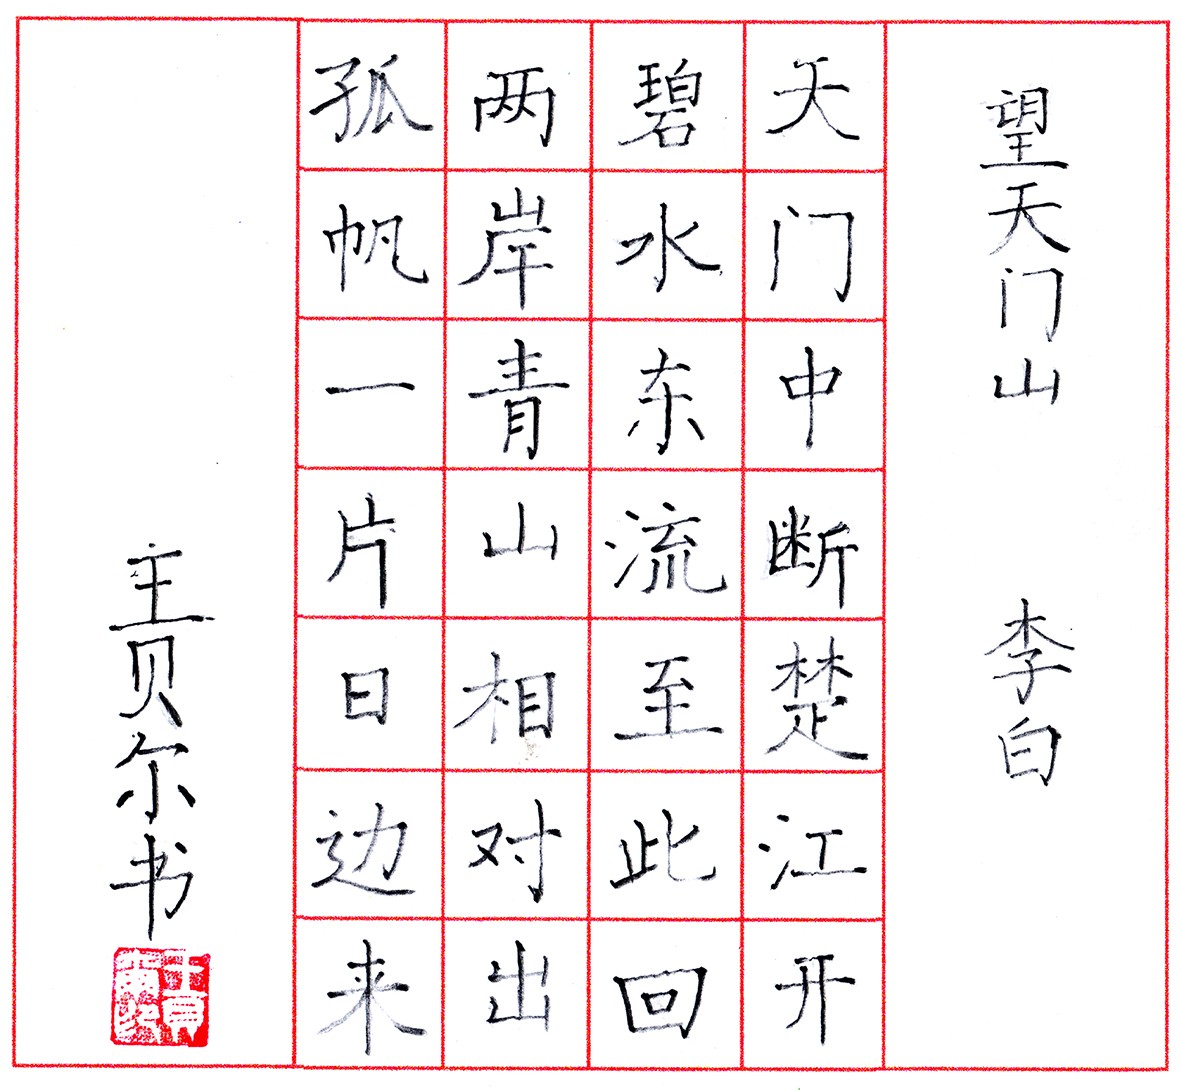 望天门山 李白
天门中断楚江开
碧水东流至此回
两岸青山相对出
孤帆一片日边来
主贝尔书